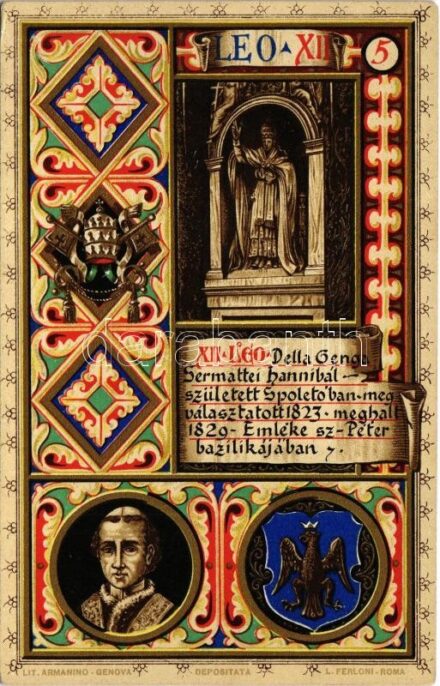 LEO · XII
5
XII · LEO · Della Genga
Sermattei Hannibál —
született Spoletoban · meg
választatott 1823 · meghalt
1829 · Emléke sz-Péter
bazilikájában
darabanth
LIT. ARMANINO - GENOVA
DEPOSITATA
L. FERLONI - ROMA